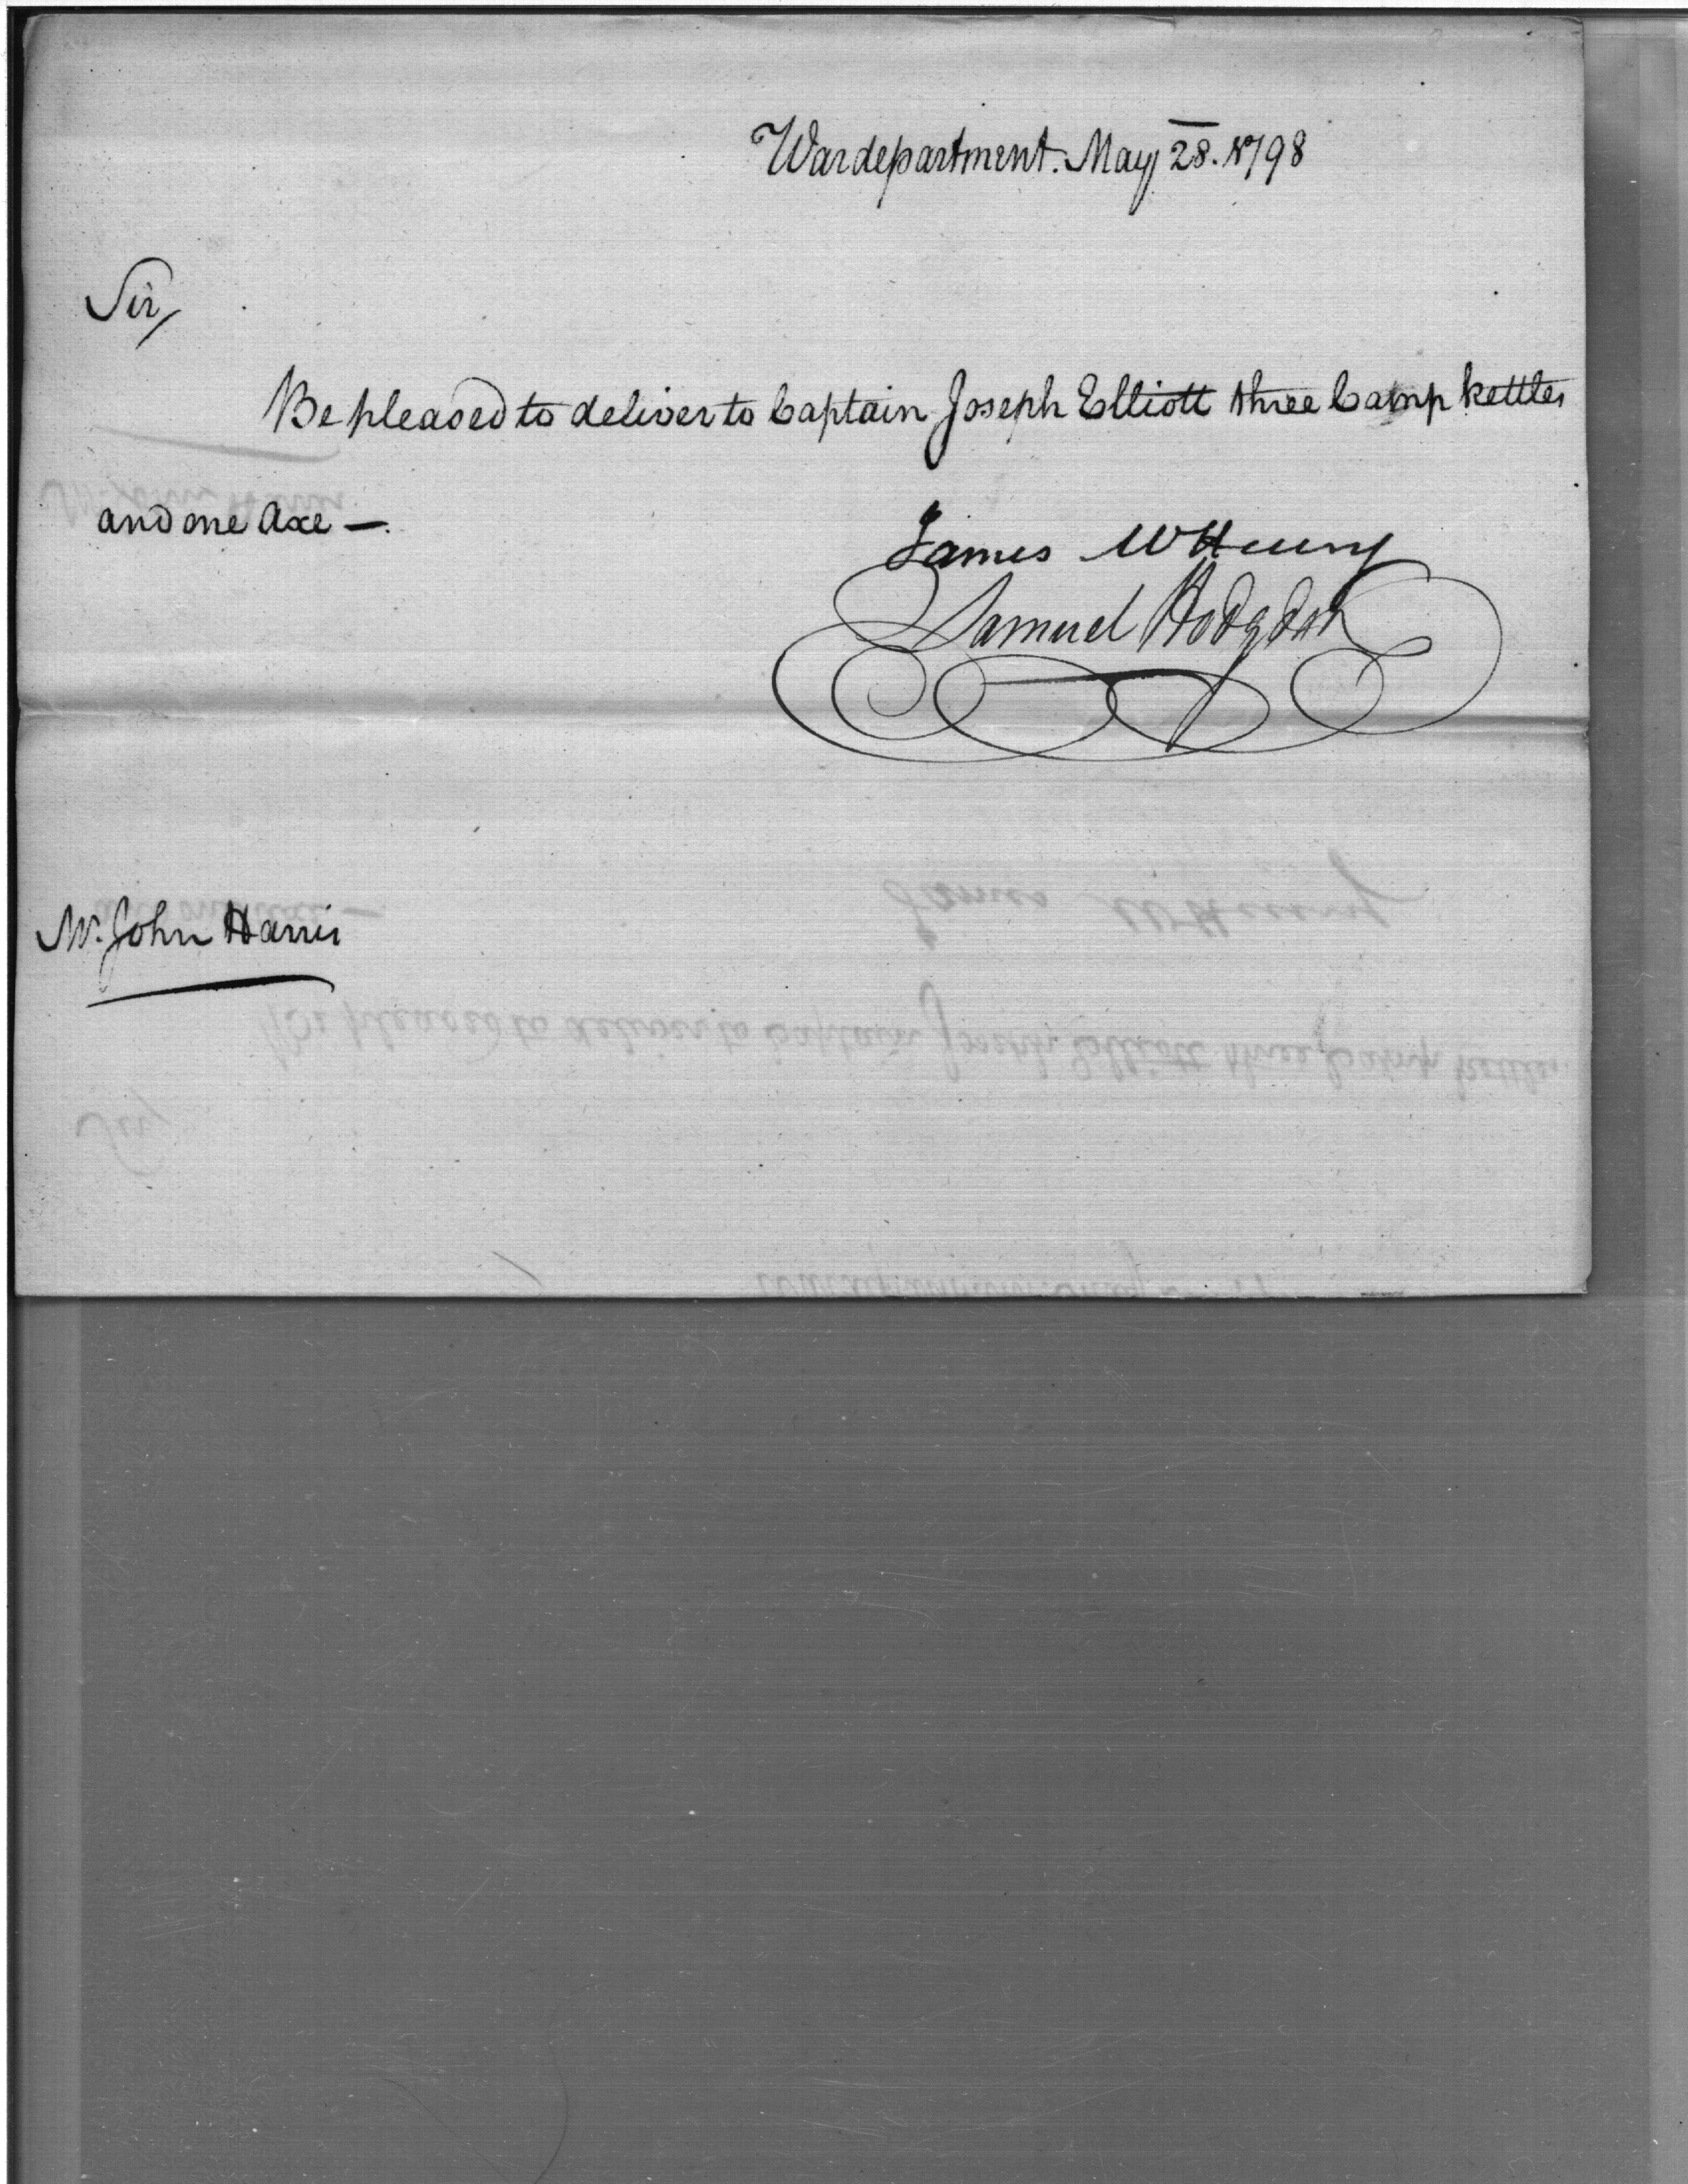 War department. May 28. 1798
Sir,
Be pleased to deliver to Captain Joseph Elliott three Camp kettles
and one Axe —.
James McHenry
Samuel Hodgdon
Mr. John Harris